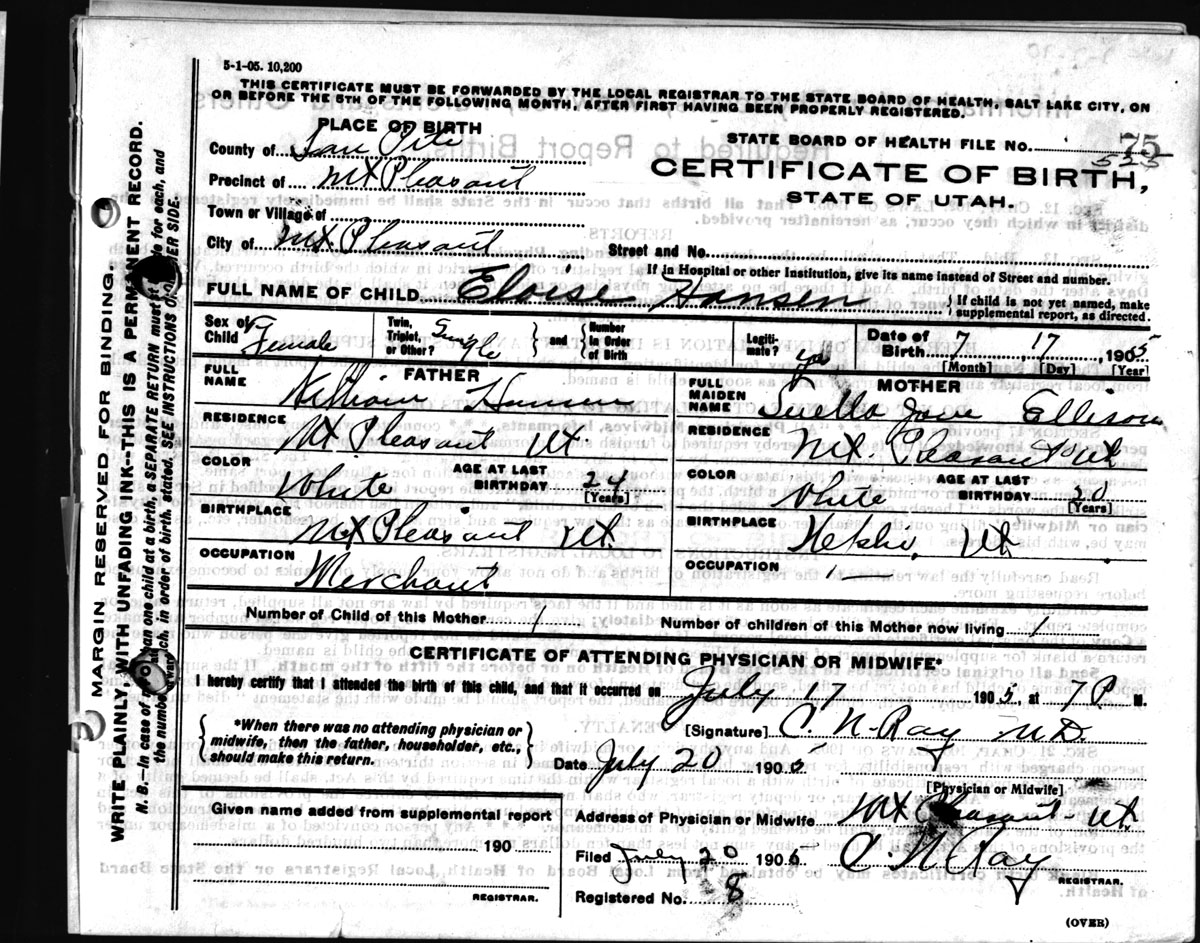 5-1-05. 10,200
THIS CERTIFICATE MUST BE FORWARDED BY THE LOCAL REGISTRAR TO THE STATE BOARD OF HEALTH, SALT LAKE CITY, ON
OR BEFORE THE 5TH OF THE FOLLOWING MONTH, AFTER FIRST HAVING BEEN PROPERLY REGISTERED.
PLACE OF BIRTH
County of San Pete
Precinct of Mt Pleasant
Town or Village of
City of Mt Pleasant
STATE BOARD OF HEALTH FILE No. 75
CERTIFICATE OF BIRTH,
STATE OF UTAH.
Street and No.
If in Hospital or other Institution, give its name instead of Street and number.
FULL NAME OF CHILD Eloise Hansen
If child is not yet named, make
supplemental report, as directed.
Sex of Child Female
Twin, Triplet, or Other? Single
and Number in Order of Birth
Legitimate? yes
Date of Birth 7 17, 1905
[Month] [Day] [Year]
FATHER
FULL NAME William Hansen
RESIDENCE Mt Pleasant Ut
COLOR White
AGE AT LAST BIRTHDAY 24
[Years]
BIRTHPLACE Mt Pleasant Ut
OCCUPATION Merchant
MOTHER
FULL MAIDEN NAME Luella Jane Ellison
RESIDENCE Mt. Pleasant Ut
COLOR White
AGE AT LAST BIRTHDAY 20
[Years]
BIRTHPLACE Ut
OCCUPATION
Number of Child of this Mother 1
Number of children of this Mother now living 1
CERTIFICATE OF ATTENDING PHYSICIAN OR MIDWIFE*
I hereby certify that I attended the birth of this child, and that it occurred on July 17 1905, at 7 P M.
*When there was no attending physician or
midwife, then the father, householder, etc.,
should make this return.
[Signature] C. N. Ray M.D.
Date July 20 190
[Physician or Midwife]
Given name added from supplemental report
190
REGISTRAR.
Address of Physician or Midwife Mt Pleasant Ut.
Filed July 20 190 C. N. Ray
REGISTRAR.
Registered No. 8
(OVER)
MARGIN RESERVED FOR BINDING.
WRITE PLAINLY, WITH UNFADING INK--THIS IS A PERMANENT RECORD.
N. B.--In case of than one child at a birth, a SEPARATE RETURN must for each, and
the number each, in order of birth, stated. SEE INSTRUCTIONS SIDE.